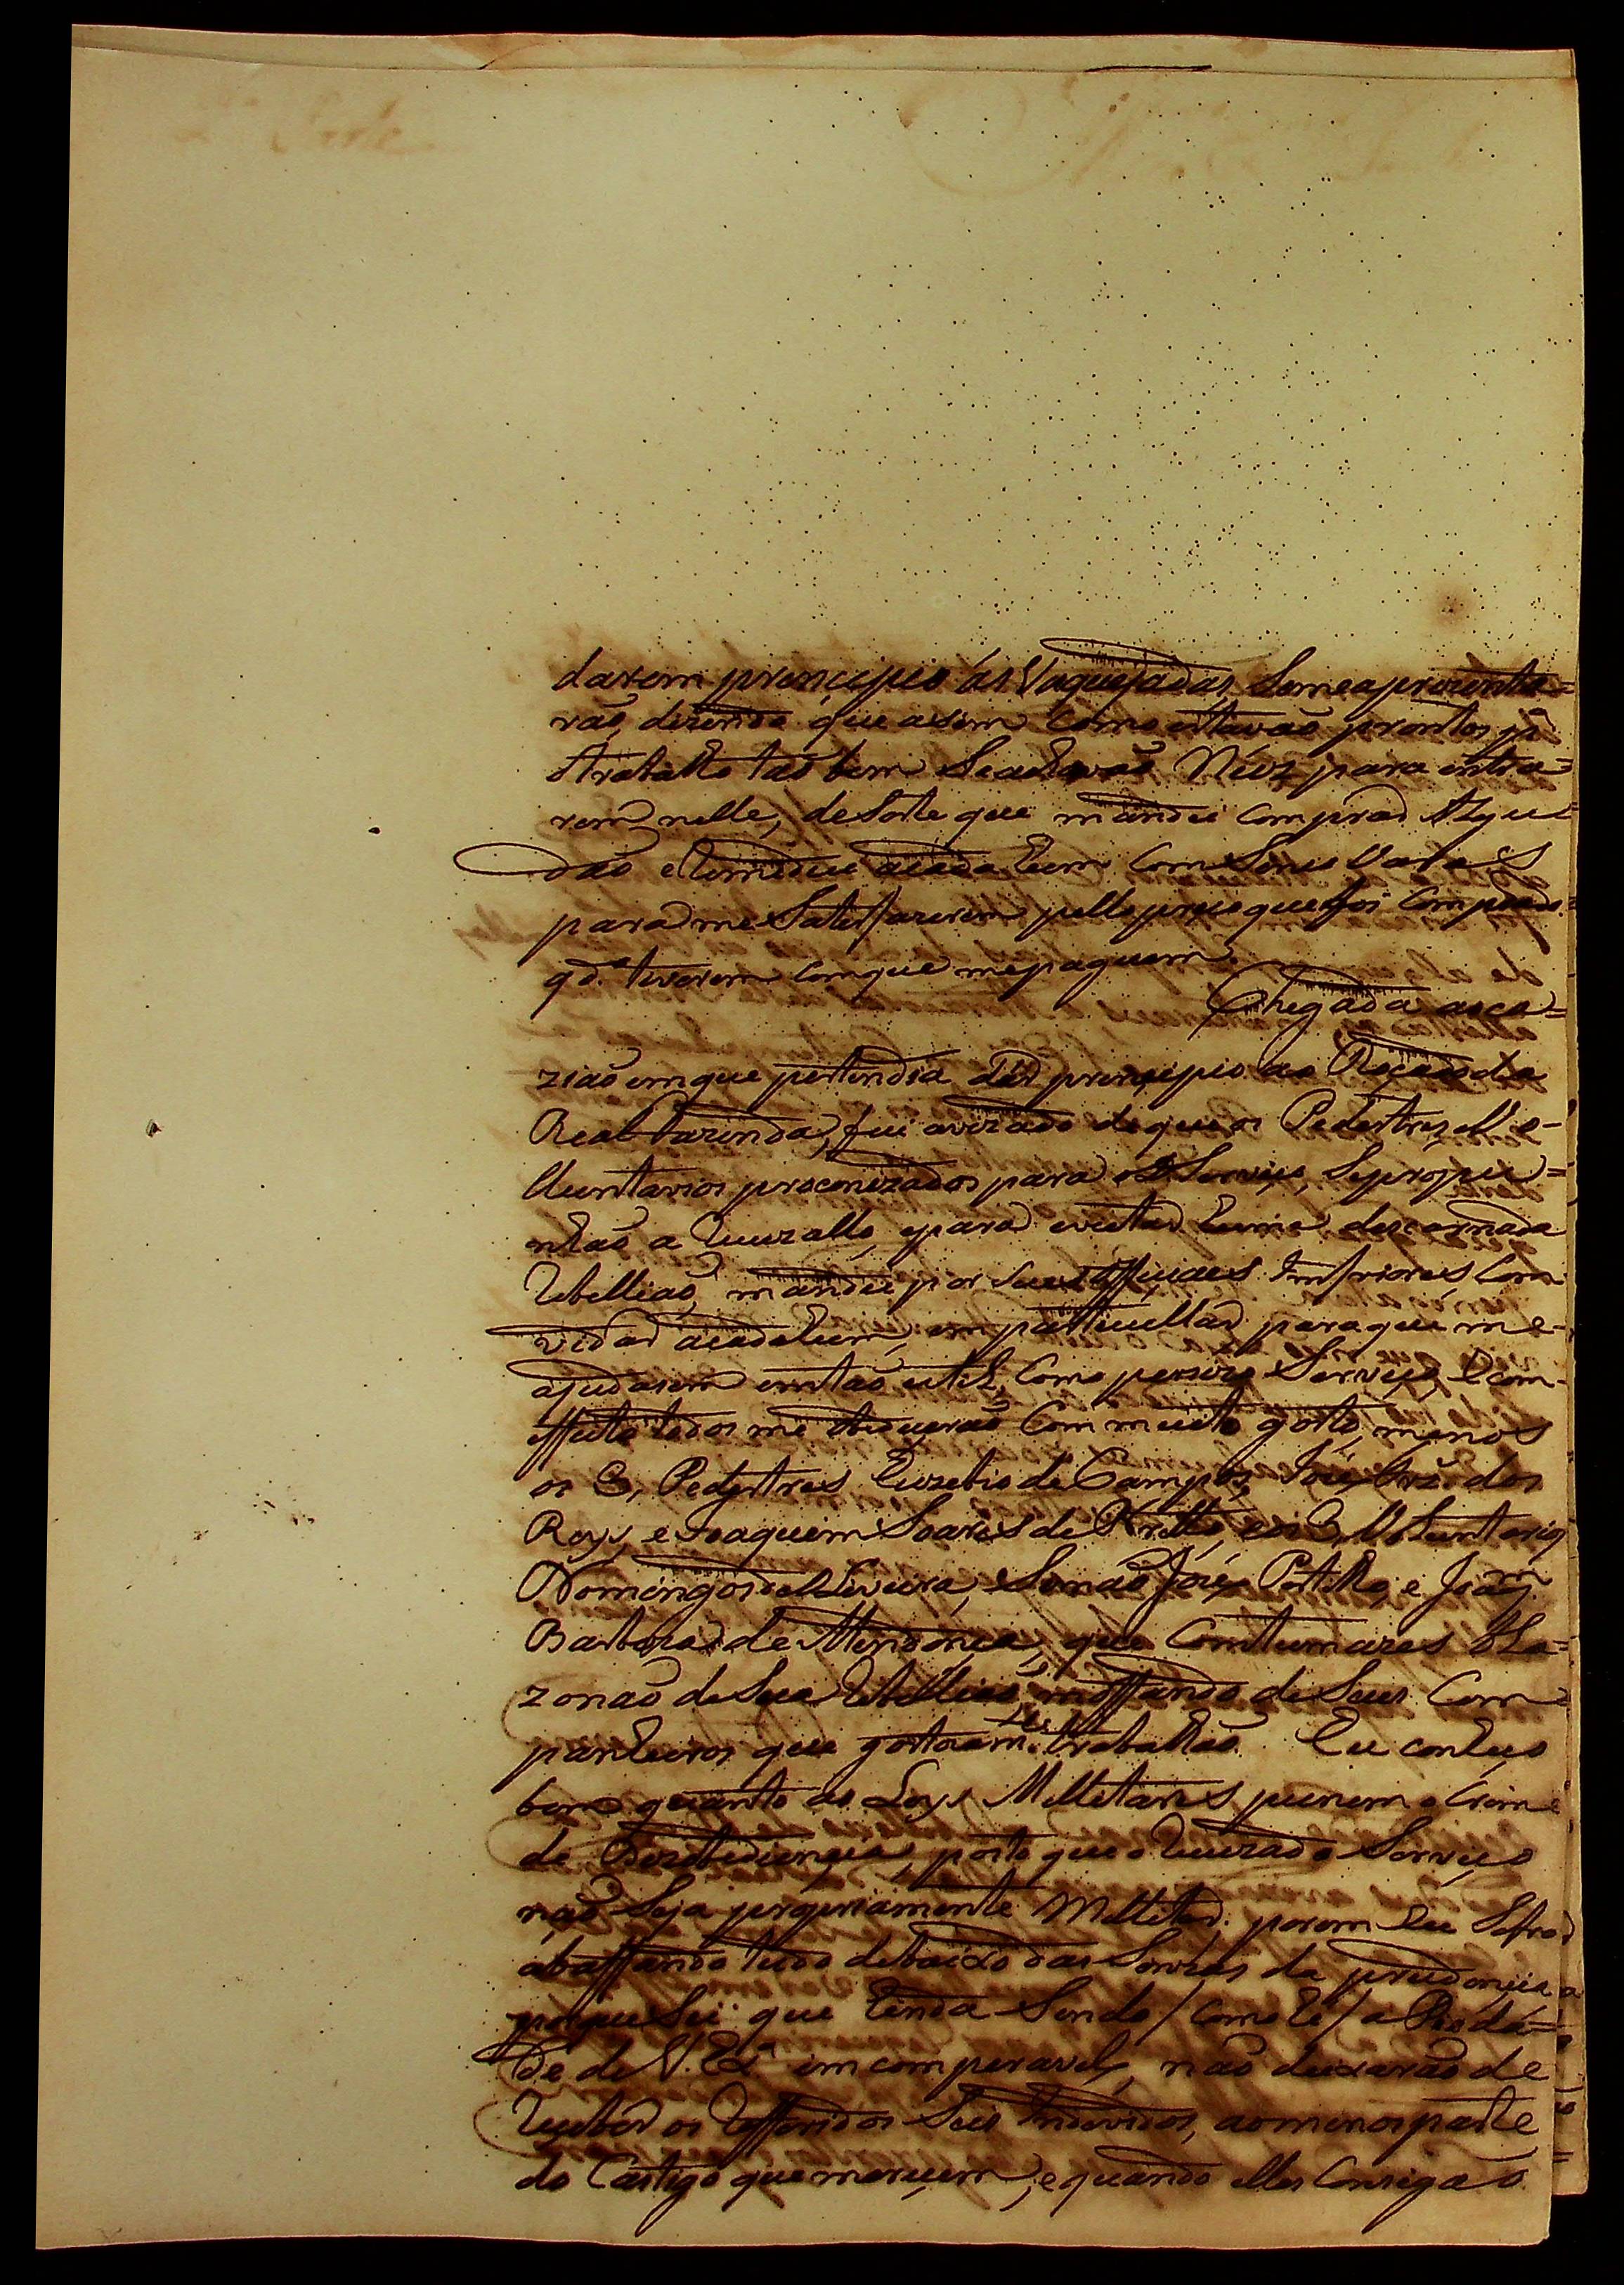 darem principio ás Vaquejadas, se me aprezenta=
rão, dizendo que asim como estavão prontos pª
o trabalho tão bem se achavão Nús para entra=
rem nelle, de sorte que mandei comprar Algu=
dão e lhe midiu a cada hum com sinco varas
para me satisfazerem pello preço que foi comprado
qdº tiverem com que me paguem.
Chegada a oca=
zião em que pertendia dar prencipio ao Roçado da
Real Fazenda, fui avizado de que os Pedestres e Vo-
lluntarios proconizados para o Serviço, se propu=
nhão a recuzallo, e para evitar huma descarnada
rebellião, mandei por seus Officiaes Inferiores com
vidar a cada hum, em particullar para que me
ajudasem em tão util, como percizo Serviço, e com
effeito todos me obedecerão com muito gosto, menos
os 3, Pedestres Euzebio de Campos, José Frz dos
Reys, e Joaquim Soares de Britto, e os 3, Voluntarios
Domingos de Oliveira, Simão José Portilho, e Joaqm
Barboza de Mendonça, que contumazes bla=
zonão de sua rebellião, moffando de seus com
panheiros que gostozamte trabalhão. Eu conheço
bem quanto as Leys Millitares punem o crime
de Dezobediencia, posto que o recuzado Serviço
não seja propriamente Millitar: porem eu sofro
abaffando tudo debaixo das sinzas da prudencia
porque sei que hinda sendo / como he / a Pieda=
de de V. Exª imcomperavel, não deixarão de
receber os refferidos seis Individos, ao menos parte
do castigo que merecem, e quando elles consigão